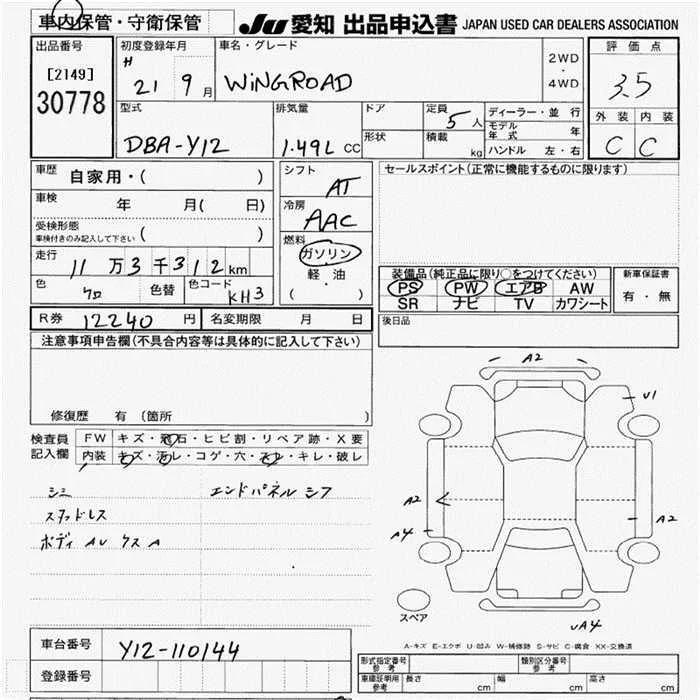 車内保管・守衛保管
JU 愛知 出品申込書 JAPAN USED CAR DEALERS ASSOCIATION
出品番号
[2149]
30778
初度登録年月
H
21 9月
車名・グレード
WINGROAD
2WD
・
4WD
評価点
3.5
外装 内装
C C
型式
DBA-Y12
排気量
1.49L CC
ドア
形状
定員
5人
積載
kg
ディーラー・並行
モデル年式 年
ハンドル 左・右
車歴 自家用・( )
車検 年 月( 日)
受検形態
車検付きのみ記入して下さい ( )
走行
11万3千312km
色
クロ
色替
色コード
KH3
シフト
AT
冷房
AAC
燃料
ガソリン
軽油
( )
セールスポイント(正常に機能するものに限ります)
装備品(純正品に限り○をつけてください)
PS PW エアB AW
SR ナビ TV カワシート
新車保証書
有・無
後日品
R券 12240円 名変期限 月 日
注意事項申告欄(不具合内容等は具体的に記入して下さい)
修復歴 有 (箇所 )
検査員
記入欄
FW キズ・飛石・ヒビ割・リペア跡・X要
内装 キズ・汚レ・コゲ・穴・スレ・キレ・破レ
シミ
エンドパネル シワ
スタッドレス
ボディ AU ウス A
A2
U1
A2
A2
A4
スペア
UA4
A-キズ E-エクボ U-凹み W-補修跡 S-サビ C-腐食 XX-交換済
車台番号 Y12-110144
登録番号
形式指定番号
参考
類別区分番号
参考
車庫証明用
参考
長さ cm 幅 cm 高さ cm